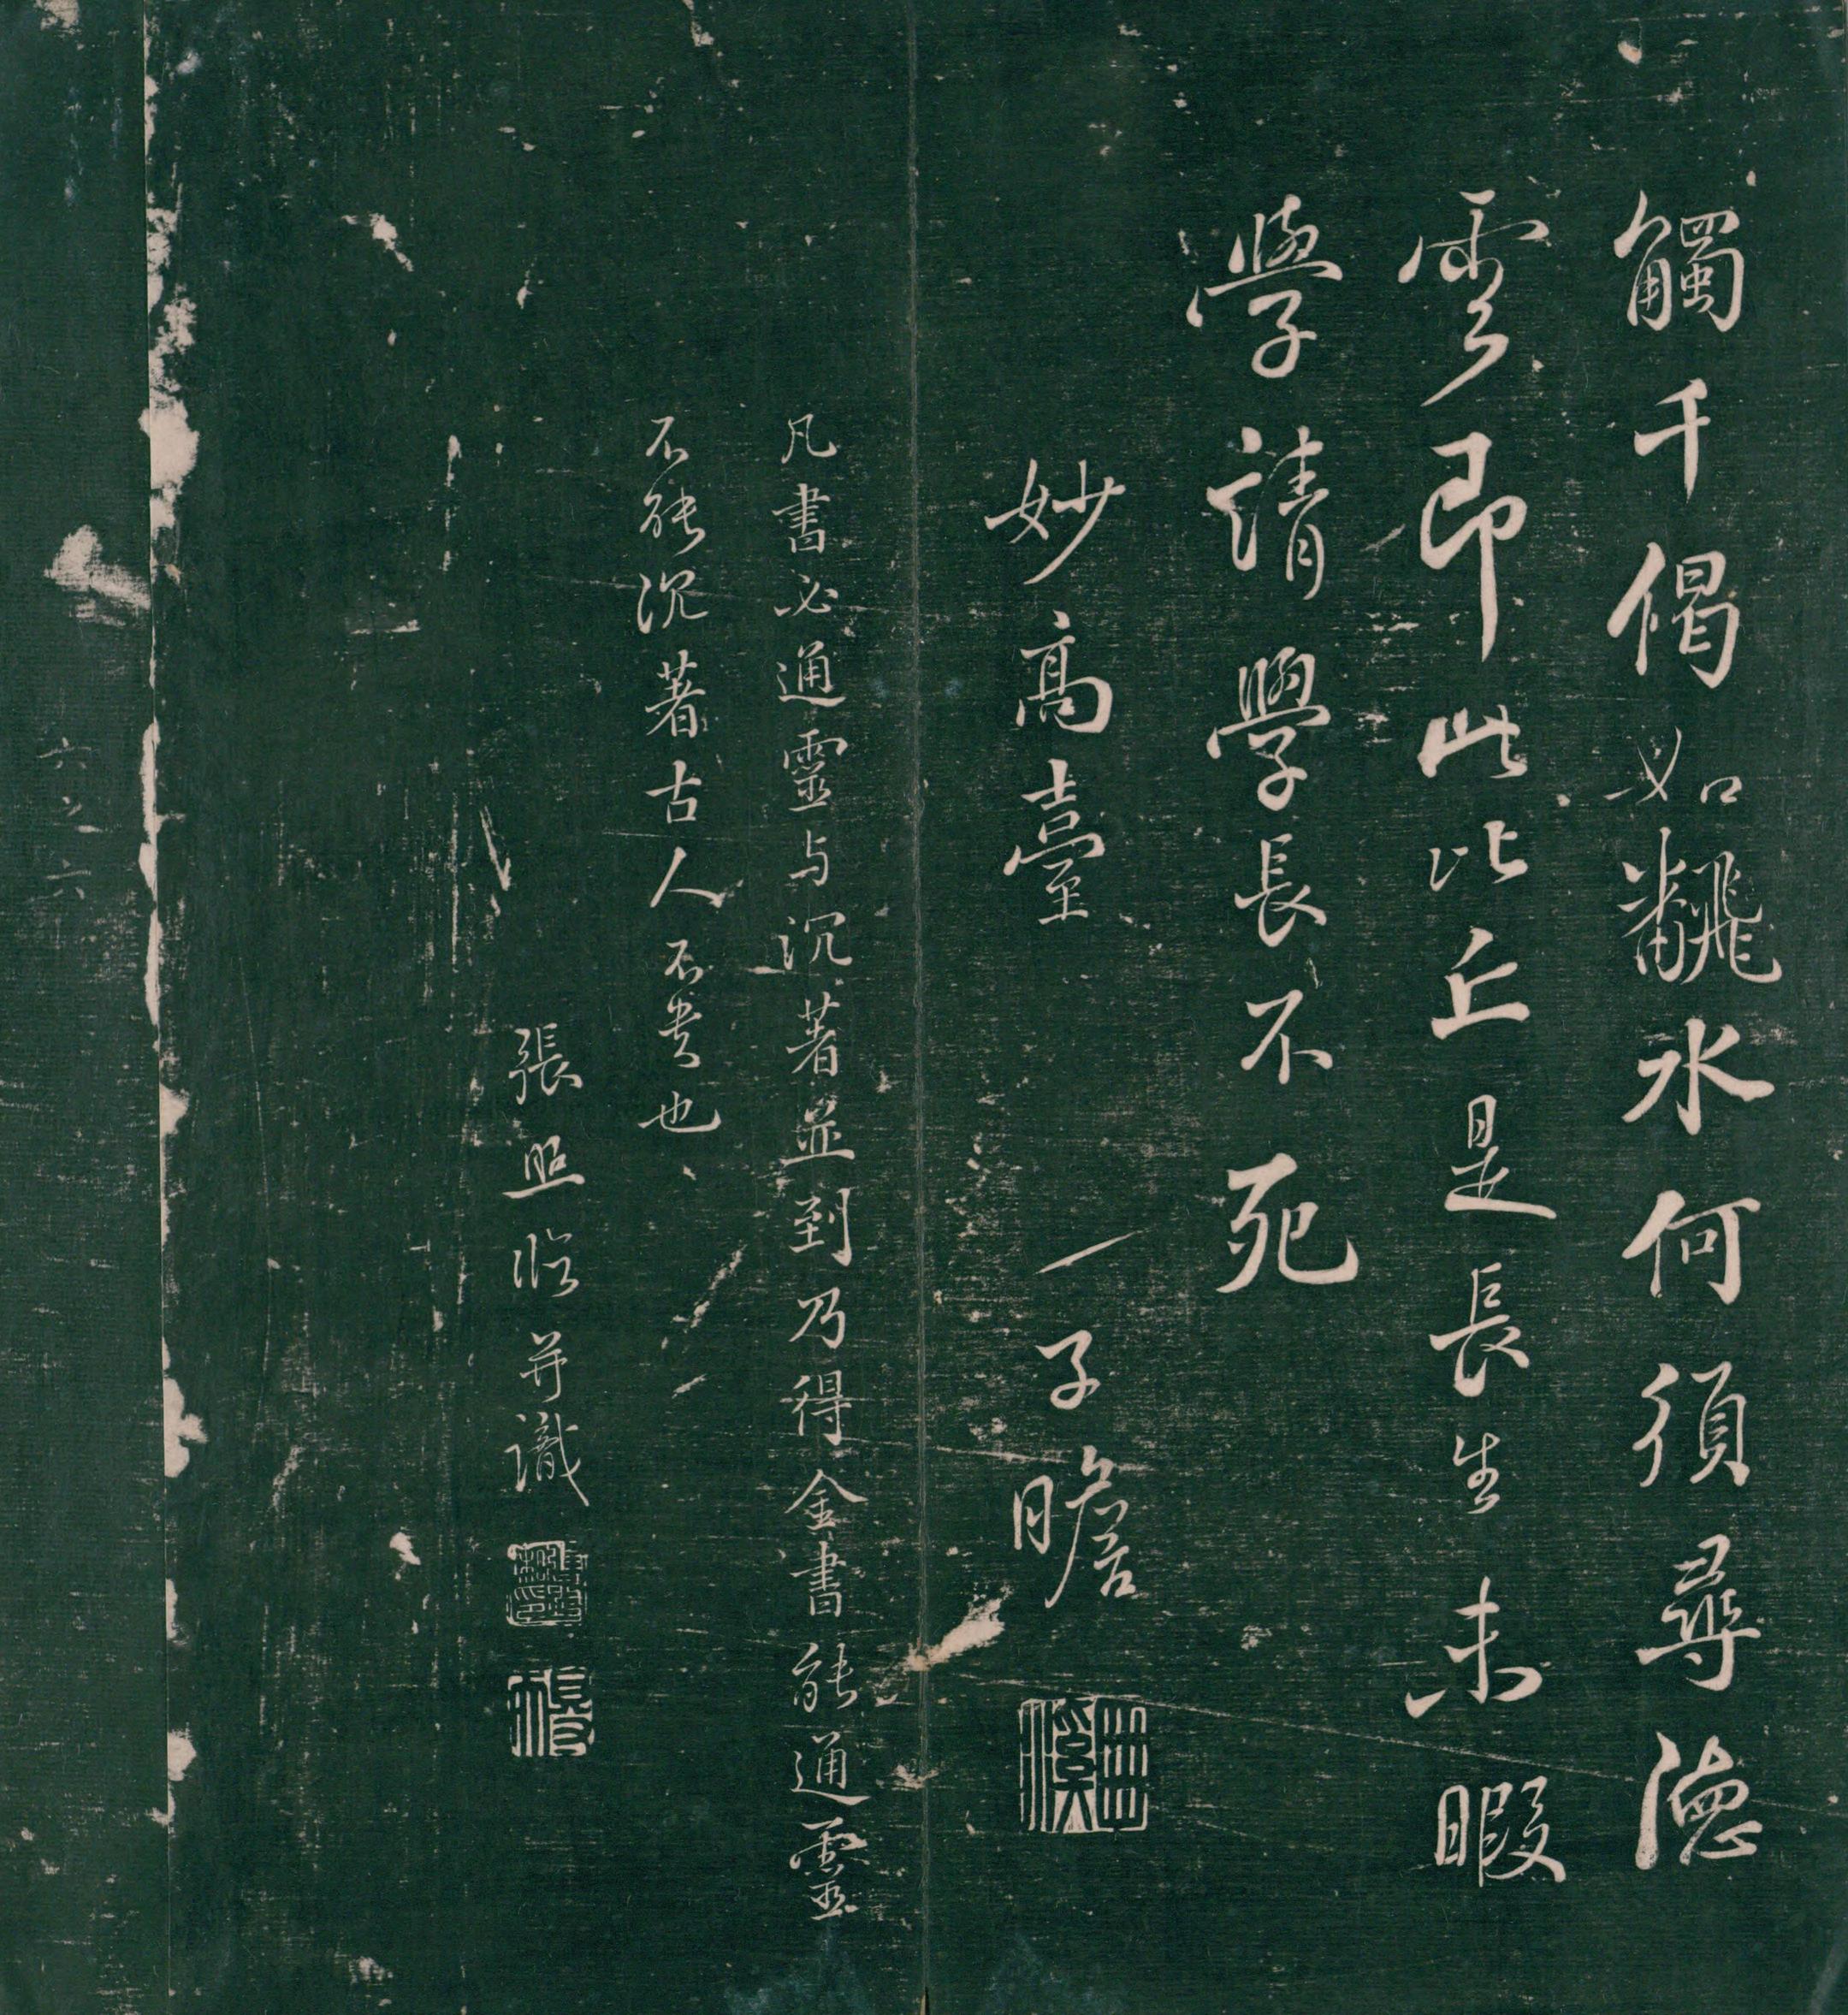 觸千偈如飜水何須尋德
雲即此比丘是長生未暇
學請學長不死
妙高臺 子瞻
凡書必通靈与沉著並到乃得金書能通靈
不能沉著古人不貴也
張照臨并識
六之六